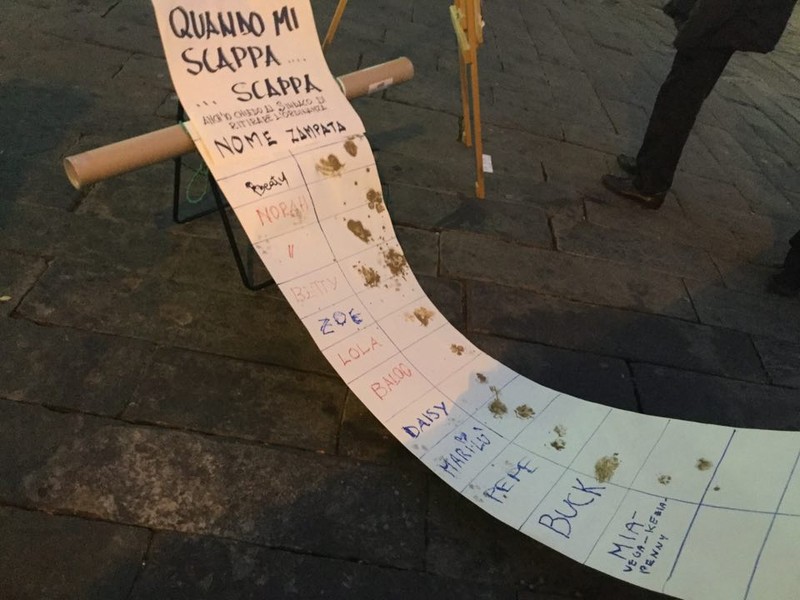 QUANDO MI
SCAPPA ....
... SCAPPA
ANCH'IO CHIEDO AL SINDACO DI
RITIRARE L'ORDINANZA
NOME ZAMPATA
Beaty
NORAH
"
BETTY
ZOE
LOLA
BALOO
DAISY
MARILÙ
PEPE
BUCK
MIA-
VEGA-KEBIA-
PENNY